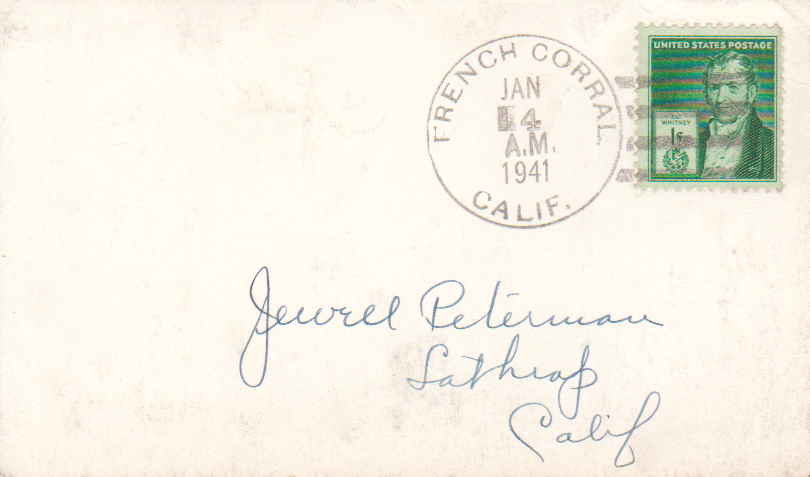 FRENCH CORRAL
JAN
4
A.M.
1941
CALIF.
UNITED STATES POSTAGE
ELI
WHITNEY
1¢
Jewell Peterman
Lathrop
Calif